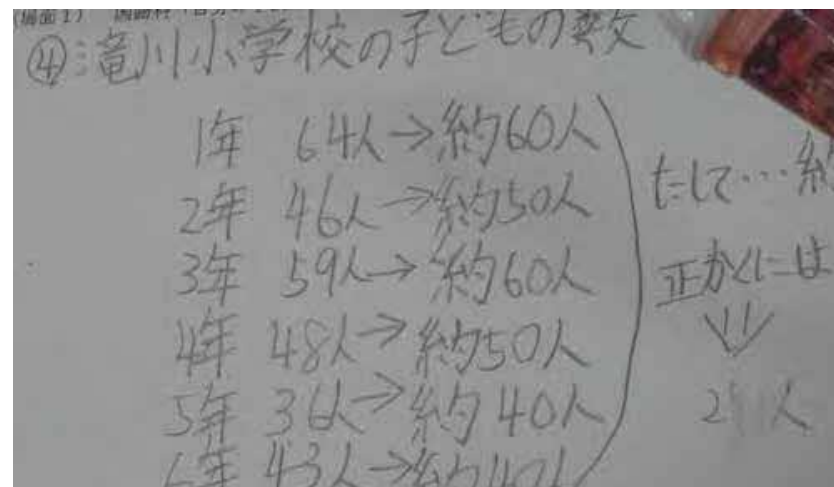 ④…竜川小学校の子どもの数
1年 64人→約60人
2年 46人→約50人
3年 59人→約60人
4年 48人→約50人
5年 36人→約40人
6年 43人→約40人
たして…約
正かくには
人